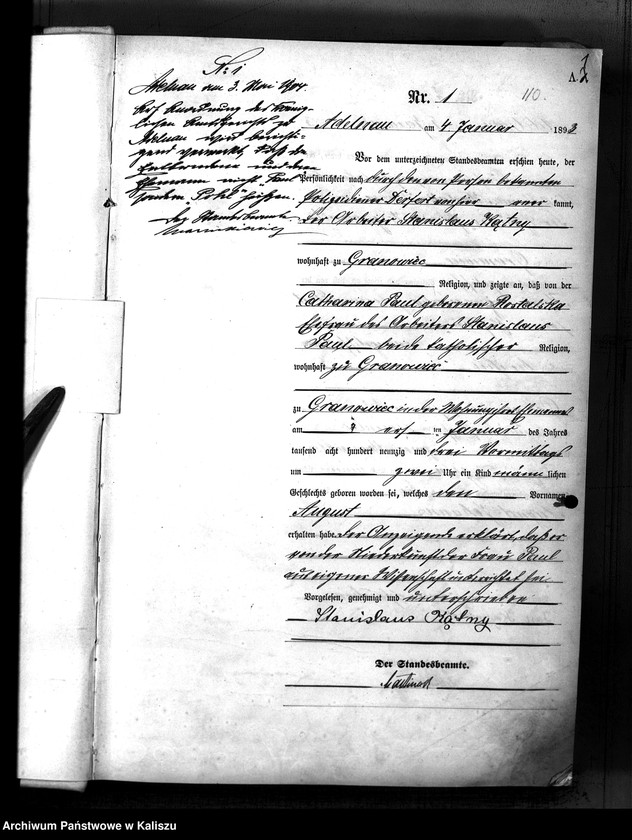 A 1
Nr. 1
110.
No 1
Adelnau am 3. Mai 1904.
Auf Anordnung des König-
lichen Amtsgerichts zu
Adelnau wird berichti-
gend vermerkt, daß die
Entbundene und deren
Ehemann nicht "Paul"
sondern heißen.
Der Standesbeamte
Adelnau am 4. Januar 1893
Vor dem unterzeichneten Standesbeamten erschien heute, der
Persönlichkeit nach durch den von Person bekannten
Polizeidiener von hier kannt,
der Arbeiter Stanislaus Kątny
wohnhaft zu Granowiec
Religion, und zeigte an, daß von der
Catharina Paul geborenen
Ehefrau des Arbeiters Stanislaus
Paul beide katholischer Religion,
wohnhaft zu Granowiec
zu Granowiec in der Wohnung ihres Ehemannes
am ersten Januar des Jahres
tausend acht hundert neunzig und drei Vormittags
um zwei Uhr ein Kind männlichen
Geschlechts geboren worden sei, welches den Vornamen
August
erhalten habe. Der Anzeigende erklärt, daß er
von der Niederkunft der Frau Paul
aus eigener Wissenschaft unterrichtet sei
Vorgelesen, genehmigt und unterschrieben
Stanislaus Kątny
Der Standesbeamte.
Archiwum Państwowe w Kaliszu